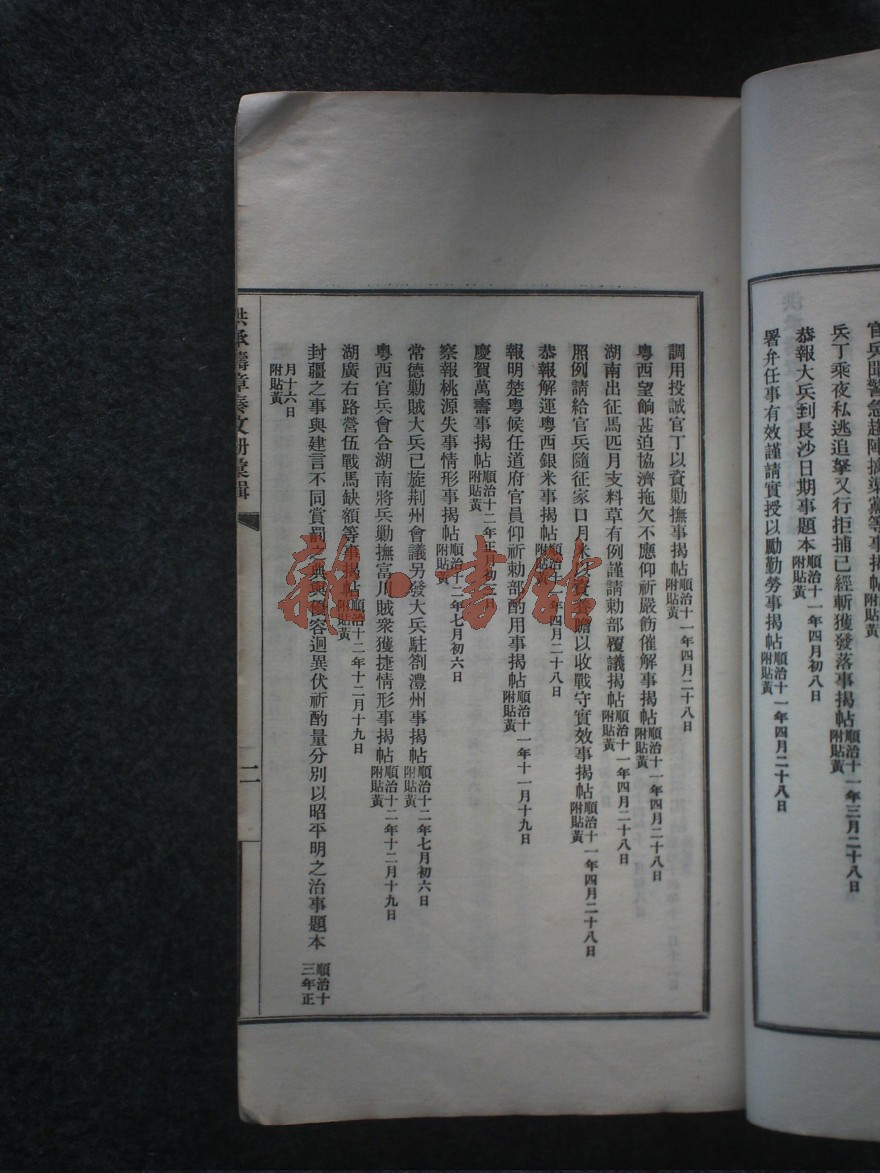 官兵聞警急趨陣擒渠黨等事揭帖
兵丁乘夜私逃追拏又行拒捕已經斬獲發落事揭帖順治十一年三月二十八日附貼黃
恭報大兵到長沙日期事題本順治十一年四月初八日附貼黃
署弁任事有效謹請實授以勵勤勞事揭帖順治十一年四月二十八日附貼黃
調用投誠官丁以資勦撫事揭帖順治十一年四月二十八日附貼黃
粵西望餉甚迫協濟拖欠不應仰祈嚴飭催解事揭帖順治十一年四月二十八日附貼黃
湖南出征馬匹月支料草有例謹請勅部覆議揭帖順治十一年四月二十八日附貼黃
照例請給官兵隨征家口月米以資養贍以收戰守實效事揭帖順治十一年四月二十八日附貼黃
恭報解運粵西銀米事揭帖順治十一年四月二十八日附貼黃
報明楚粵候任道府官員仰祈勅部酌用事揭帖順治十一年十一月十九日附貼黃
慶賀萬壽事揭帖順治十二年正月初三月附貼黃
察報桃源失事情形事揭帖順治十二年七月初六日附貼黃
常德勦賊大兵已旋荆州會議另發大兵駐劄澧州事揭帖順治十二年七月初六日附貼黃
粵西官兵會合湖南將兵勦撫富川賊衆獲捷情形事揭帖順治十二年十二月十九日附貼黃
湖廣右路營伍戰馬缺額等事揭帖順治十二年十二月十九日附貼黃
封疆之事與建言不同賞罰之典與優容迥異伏祈酌量分別以昭平明之治事題本順治十三年正
月十六日附貼黃
洪承疇章奏文册彙輯
二
雜·書館